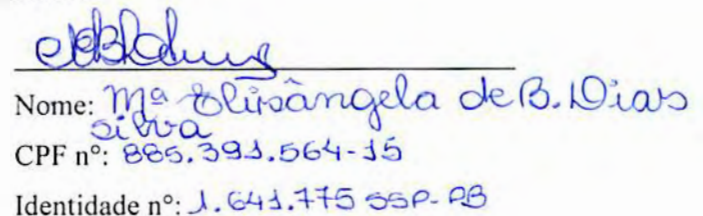 Nome: Mª Elisângela de B. Dias
Silva
CPF nº: 885.391.564-15
Identidade nº: 1.641.775 SSP-PB